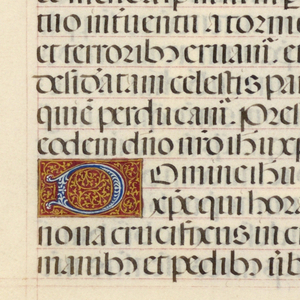 tuo intuentur a torme
et terroribꝫ eruam̄. e
desid̓atam celestis pa
quiē perducam̄. Pres
eodem dn̄o nr̄o ihu xp
Domine ihu
xp̄e qui hora
nona crucifixus in c
manibꝫ et pedibꝫ ub